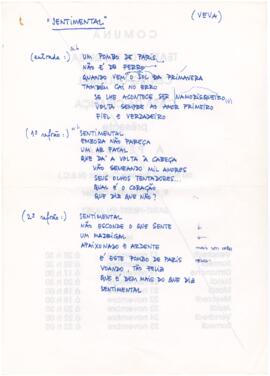 "SENTIMENTAL"
(VEVA)
(entrada:)
UM POMBO DE PARIS
NÃO É DE FERRO
QUANDO VEM O SOL DA PRIMAVERA
TAMBÉM CAI NO ERRO
SE LHE ACONTECE SER NAMORISQUEIRO
VOLTA SEMPRE AO AMOR PRIMEIRO
FIEL E VERDADEIRO
(1º refrão:)
SENTIMENTAL
EMBORA NÃO PAREÇA
UM AR FATAL
QUE DÁ A VOLTA À CABEÇA
VÃO SEMEANDO MIL AMORES
SEUS OLHOS TENTADORES...
QUAL É O CORAÇÃO
QUE DIZ QUE NÃO?
(2º refrão:)
SENTIMENTAL
NÃO ESCONDE O QUE SENTE
UM MADRIGAL
APAIXONADO E ARDENTE
É ESTE POMBO DE PARIS
VOANDO, TÃO FELIZ
QUE É BEM MAIS DO QUE DIZ
SENTIMENTAL